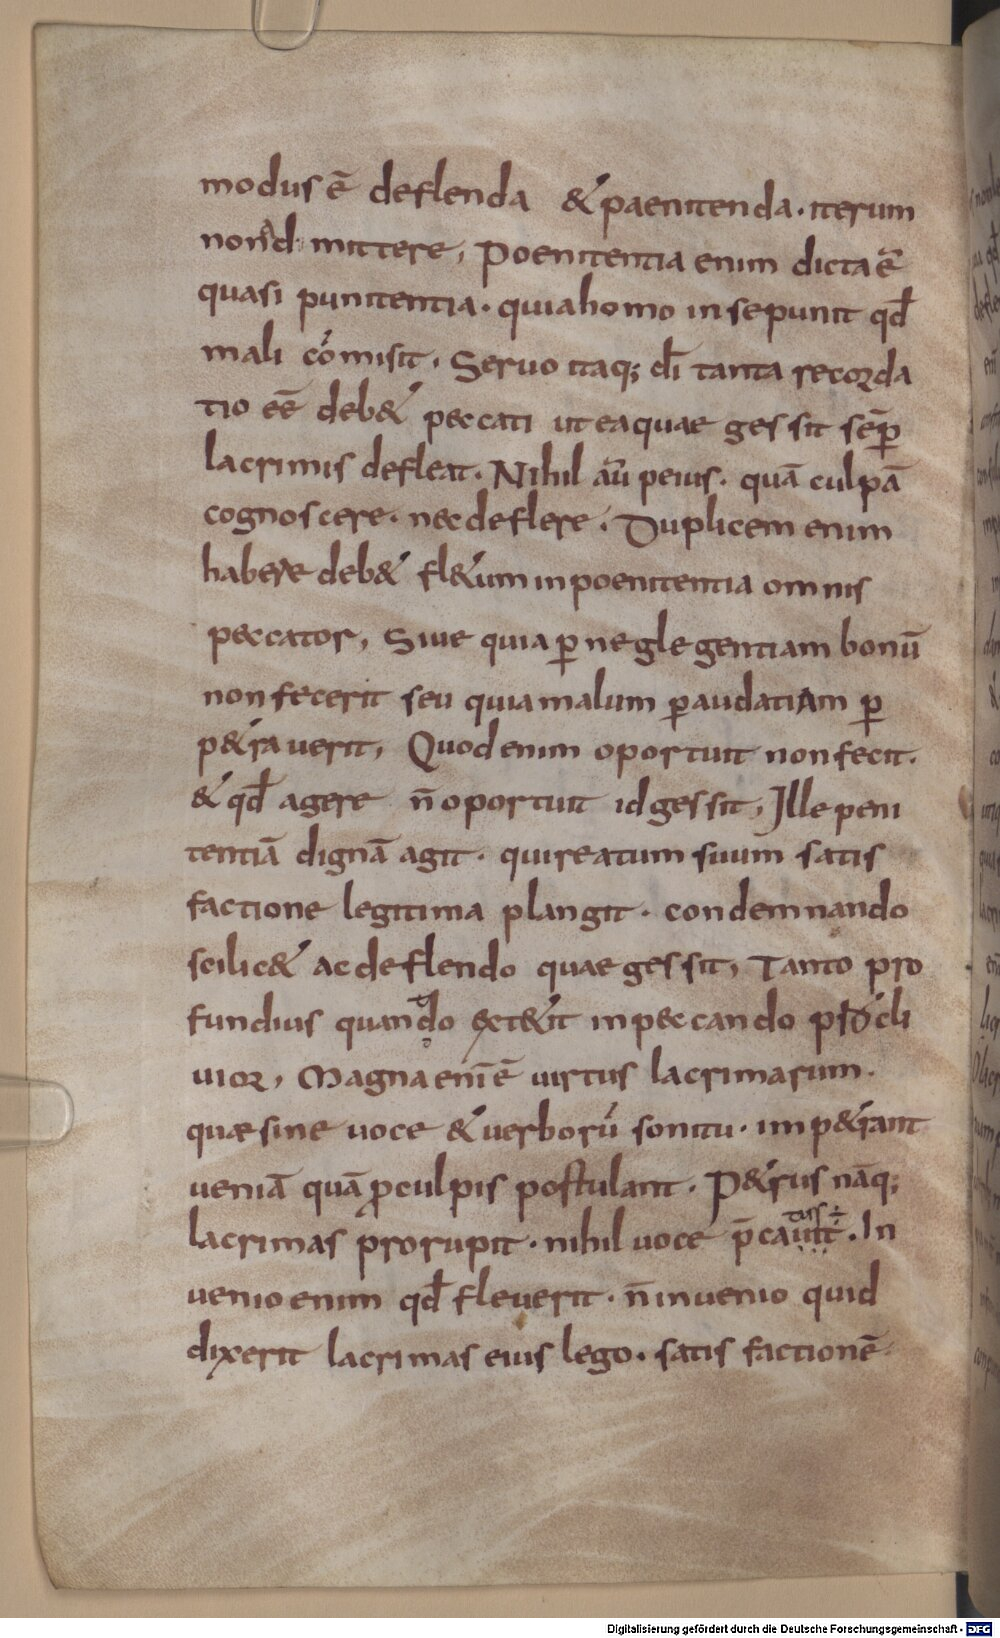 modus ē deflenda & paenitenda· iterum
non ad mittere, Poenitentia enim dicta ē
quasi punitentia· quia homo in se punit qđ
mali cōmisit, Seruo itaq; dī tanta recorda
tio eē deb& peccati ut ea quae gessit sēp
lacrimis defleat· Nihil aū peius· quā culpā
cognoscere· nec deflere· Duplicem enim
habere deb& fl&um in poenitentia omnis
peccator, Siue quia ꝑ neglegentiam bonū
non fecerit seu quia malum ꝑ audatiam ꝑ
p&rauerit, Quod enim oportuit non fecit·
& qđ agere n̄ oportuit id gessit, Ille peni
tentiā dignā agit· qui reatum suum satis
factione legitima plangit· condemnando
scilic& ac deflendo quae gessit, Tanto pro
fundius quando in peccando
uior, Magna eni ē uirtus lacrimarum·
quae sine uoce & uerborū sonitu· imp&rant
ueniā quā ꝓ culpis postulant· P&rus nāq;
lacrimas prorupit· nihil uoce In
uenio enim qđ fleuerit· n̄ inuenio quid
dixerit lacrimas eius lego· satis factionē
Digitalisierung gefördert durch die Deutsche Forschungsgemeinschaft - DFG